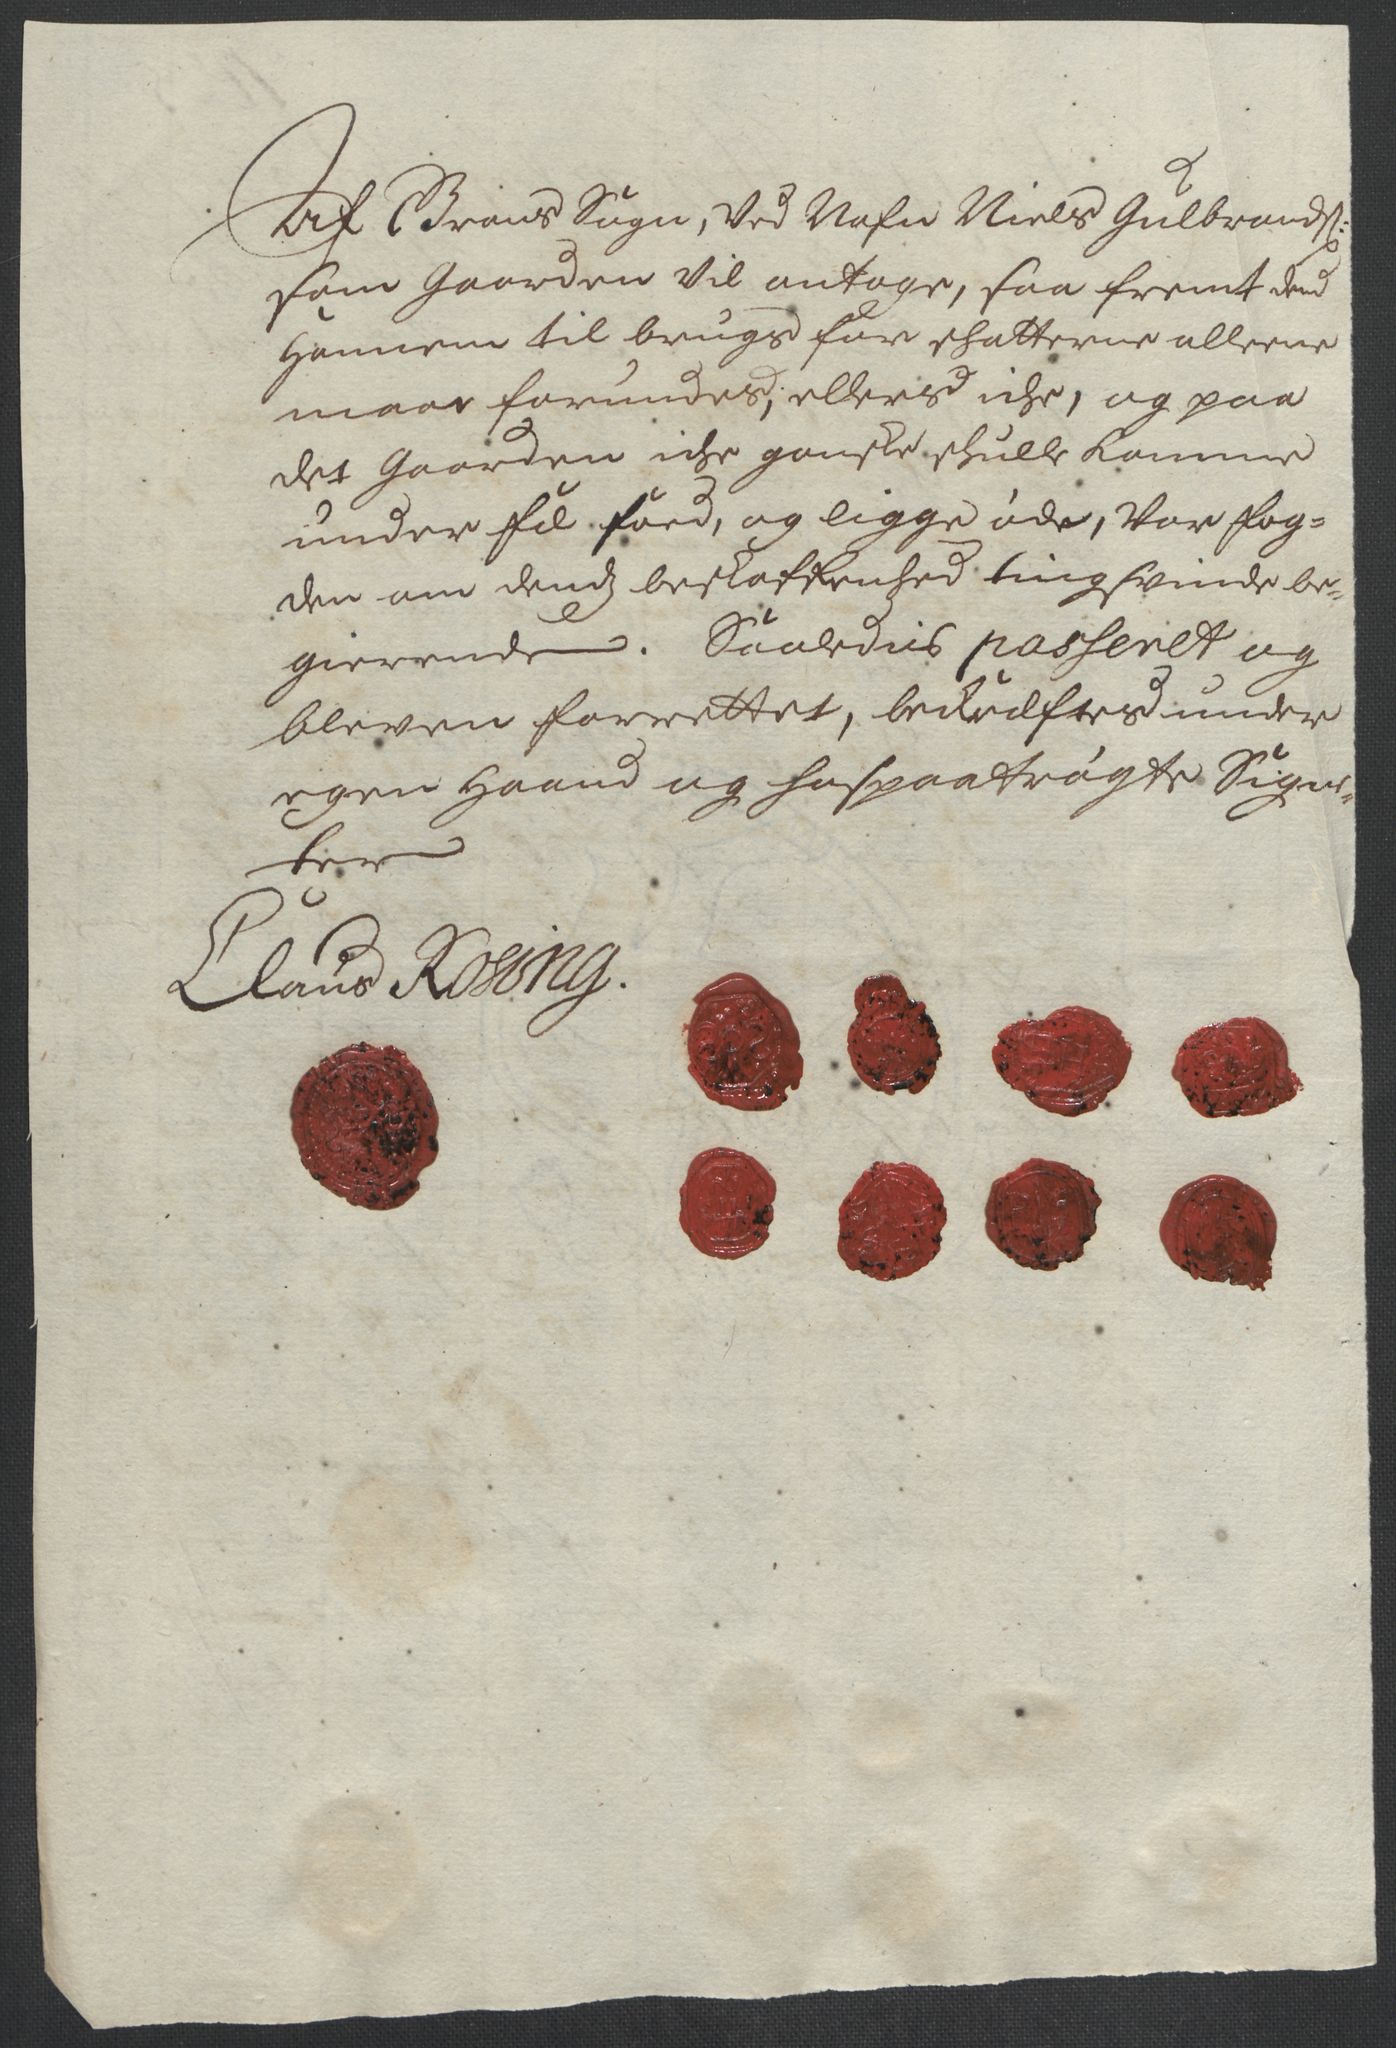 Af Grans Sogn, ved Nafn Niels Gulbrands:
som Gaarden vil antage, saa fremt dend
Hannem til brugs for schatterne alleene
maae forundes, ellers iche, og paa
det Gaarden iche ganske schulle komme
under fæ foed, og ligge øde, var fog=
den om dends beskaffenhed tingsvinde be=
gierende. Saaledis passeret og
bleven forrettet, bekræftes under
egen Haand og hospaatrøgte Signe=
ter
Claus Rosing.